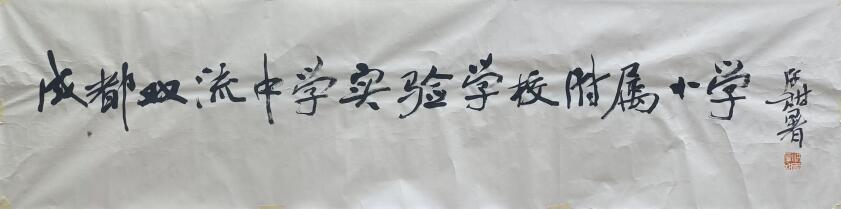 成都双流中学实验学校附属小学